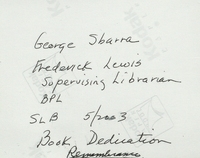 George Sbarra
Frederick Lewis
Supervising Librarian
BPL
SLB 5/2003
Book Dedication
Remembrance